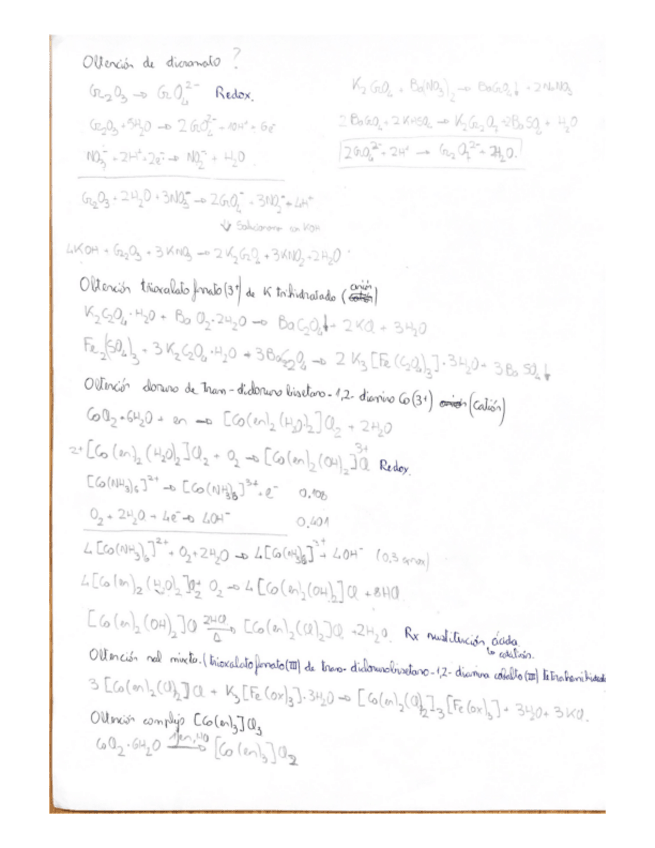 Obtención de dicromato ?
Cr₂O₃ → CrO₄²⁻ Redox.
Cr₂O₃ + 5H₂O → 2CrO₄²⁻ + 10H⁺ + 6e⁻
NO₃⁻ + 2H⁺ + 2e⁻ → NO₂⁻ + H₂O
Cr₂O₃ + 2H₂O + 3NO₃⁻ → 2CrO₄⁻ + 3NO₂⁻ + 4H⁺
↓ en KOH
4KOH + Cr₂O₃ + 3KNO₃ → 2K₂CrO₄ + 3KNO₂ + 2H₂O
K₂CrO₄ + Ba(NO₃)₂ → BaCrO₄↓ + 2
2BaCrO₄ + 2KHSO₄ → K₂Cr₂O₇ + 2BaSO₄ + H₂O
2CrO₄²⁻ + 2H⁺ → Cr₂O₇²⁻ +
Obtención trioxalato ferrato (3+) de K trihidratado (anión)
K₂C₂O₄·H₂O + Ba Cl₂·2H₂O → BaC₂O₄↓ + 2KCl + 3H₂O
Fe₂(SO₄)₃ + 3K₂C₂O₄·H₂O + 3BaC₂O₄ → 2K₃[Fe(C₂O₄)₃]·3H₂O + 3BaSO₄↓
Obtención cloruro de tran-diclorurobisetano-1,2-diamino Co(3+) (catión)
CoCl₂·6H₂O + en → [Co(en)₂(H₂O)₂]Cl₂ + 2H₂O
[Co(en)₂(H₂O)₂]Cl₂ + O₂ → [Co(en)₂(OH)₂]Cl Redox.
[Co(NH₃)₆]²⁺ → [Co(NH₃)₆]³⁺ + e⁻ 0,108
O₂ + 2H₂O + 4e⁻ → 4OH⁻ 0,401
4[Co(NH₃)₆]²⁺ + O₂ + 2H₂O → 4[Co(NH₃)₆]³⁺ + 4OH⁻ (0,3 aprox)
4[Co(en)₂(H₂O)₂]Cl₂ + O₂ → 4[Co(en)₂(OH)₂]Cl + 8HCl
[Co(en)₂(OH)₂]Cl 2HCl/Δ → [Co(en)₂(Cl)₂]Cl + 2H₂O. Rx sustitución ácida.
↳ catión.
Obtención sal mixta. (trioxalatoferrato(III) de trans-diclorurobisetano-1,2-diamina cobalto(III) tetrahemihidratado
3[Co(en)₂(Cl)₂]Cl + K₃[Fe(ox)₃]·3H₂O → [Co(en)₂(Cl)₂]₃[Fe(ox)₃] + 3H₂O + 3KCl.
Obtención complejo [Co(en)₃]Cl₃
CoCl₂·6H₂O → [Co(en)₃]Cl₂